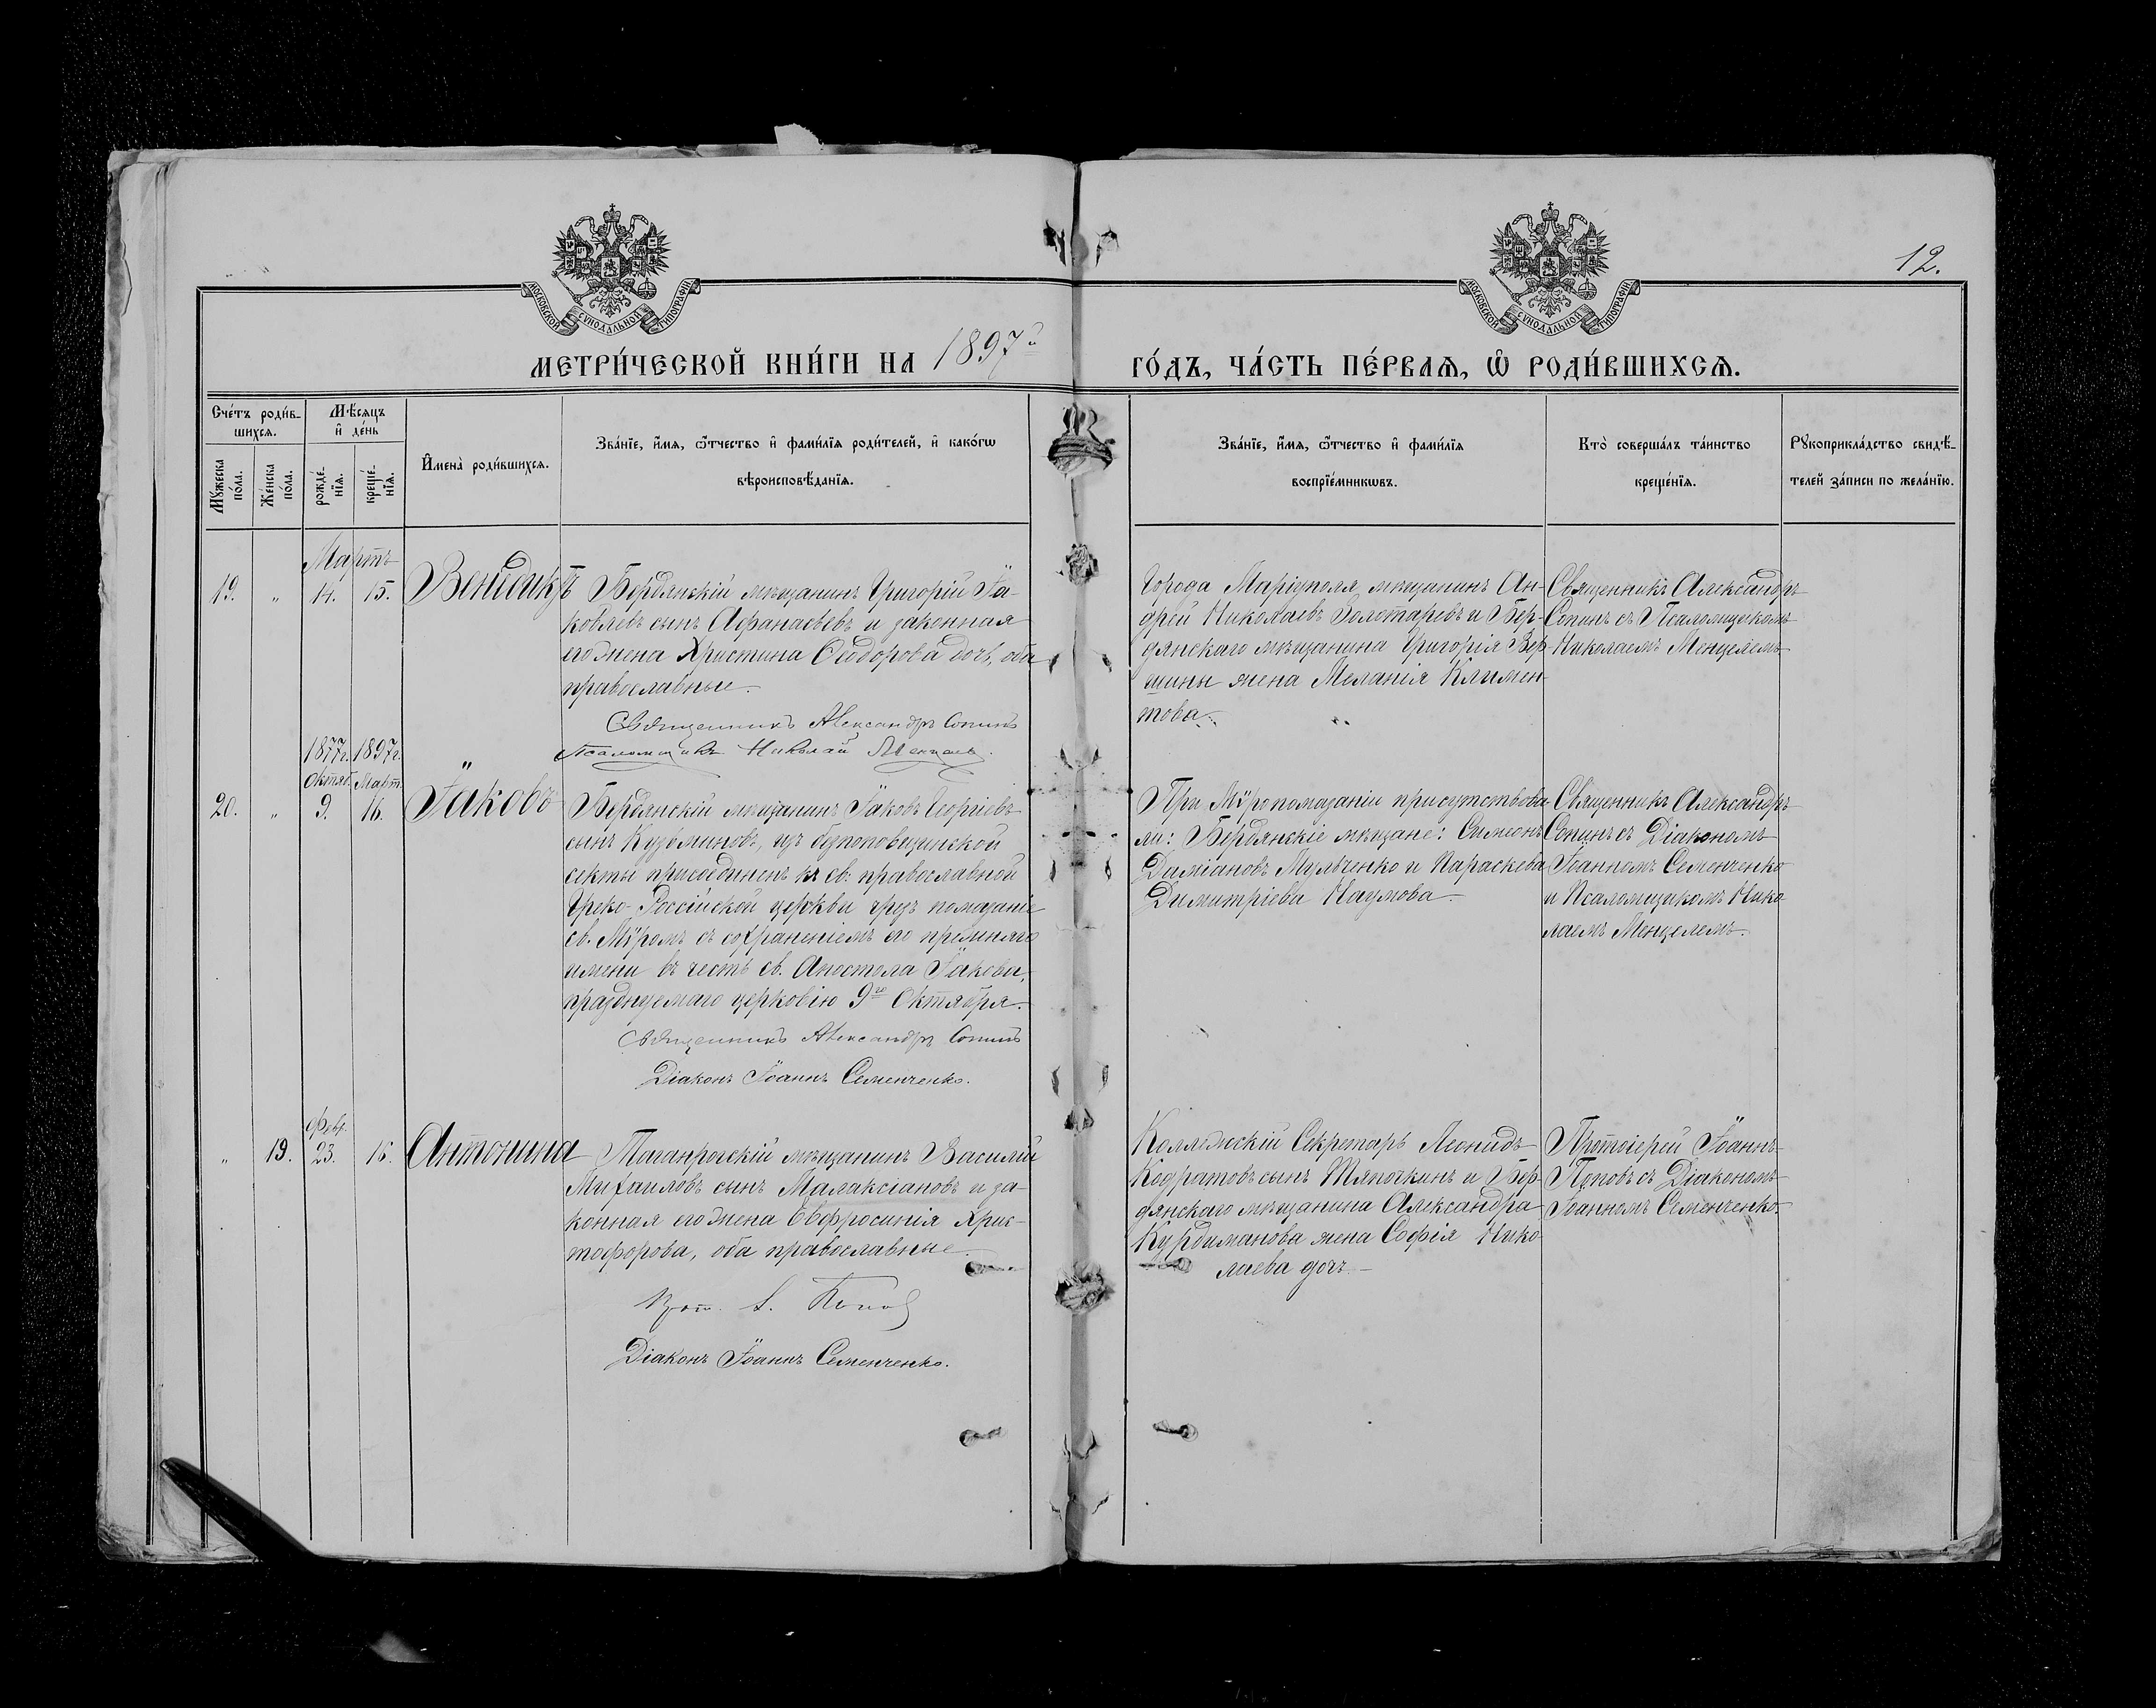 12.
МОСКОВСКОЙ СѴНОДАЛЬНОЙ ТИПОГРАФІИ
МОСКОВСКОЙ СѴНОДАЛЬНОЙ ТИПОГРАФІИ
МЕТРИ́ЧЕСКОЙ КНИ́ГИ НА 1897й ГО́ДЪ, ЧА́СТЬ ПЕ́РВАЯ, Ѽ РОДИ́ВШИХСЯ.
Сче́тъ роди́в-
шихся.
Мꙋ́жеска по́ла.
Же́нска по́ла.
Мѣ́сяцъ
и҆ де́нь
рожде́-
нїя.
креще́-
нїя.
И҆мена̀ роди́вшихся.
Зва́нїе, и҆́мя, ѻ҆́тчество и҆ фами́лїя роди́телей, и҆ како́гѡ
вѣроисповѣ́данїя.
Зва́нїе, и҆́мя, ѻ҆́тчество и҆ фами́лїя
воспрїе́мникѡвъ.
Кто̀ соверша́лъ та́инство
креще́нїя.
Рꙋкоприкла́дство свидѣ́-
телей за́писи по жела́нїю.
Мартъ
19. " 14. 15. Венедиктъ
Бердянскій мѣщанинъ Григорій Іа-
ковлевъ сынъ Афанасьевъ и законная
его жена Христина Ѳеодорова дочь, оба
православные.
Священникъ Александръ Сопинъ
Псаломщикъ Николай Менцель.
Города Маріуполя мѣщанинъ Ан-
дрей Николаевъ Золотаревъ и Бер-
дянскаго мѣщанина Григорія Вер
шины жена Меланія Климен-
това.
Священникъ Александръ
Сопинъ съ Псаломщикомъ
Николаемъ Менцелемъ
1877г. 1897г.
Октяб. Март.
20. " 9. 16. Іаковъ
Бердянскій мѣщанинъ Іаковъ Георгіевъ
сынъ Кузьминовъ, изъ безпоповщинской
секты присоединенъ къ св. православной
Греко-Россійской церкви чрезъ помазаніе
св. Мѵромъ съ сохраненіемъ его прежняго
имени въ честь св. Апостола Іакова,
празднуемаго церковію 9го Октября.
Священникъ Александръ Сопинъ
Діаконъ Іоаннъ Семенченко.
При Мѵропомазаніи присутствова-
ли: Бердянскіе мѣщане: Симеонъ
Даміановъ Мульченко и Параскева
Димитріева Наумова.
Священникъ Александръ
Сопинъ съ Діакономъ
Іоанномъ Семенченко
и Псаломщикомъ Нико
лаемъ Менцелемъ.
Февр.
" 19. 23. 16. Антонина
Таганрогскій мѣщанинъ Василій
Михаиловъ сынъ Малаксіановъ и за-
конная его жена Евфросинія Хрис-
тофорова, оба православные.
Прот. І. Поповъ
Діаконъ Іоаннъ Семенченко.
Коллежскій Секретарь Леонидъ
Кодратовъ сынъ Тяпочкинъ и Бер-
дянскаго мѣщанина Александра
Курдиманова жена Софія Нико
лаева дочь.
Протоіерей Іоаннъ
Поповъ съ Діакономъ
Іоанномъ Семенченко.